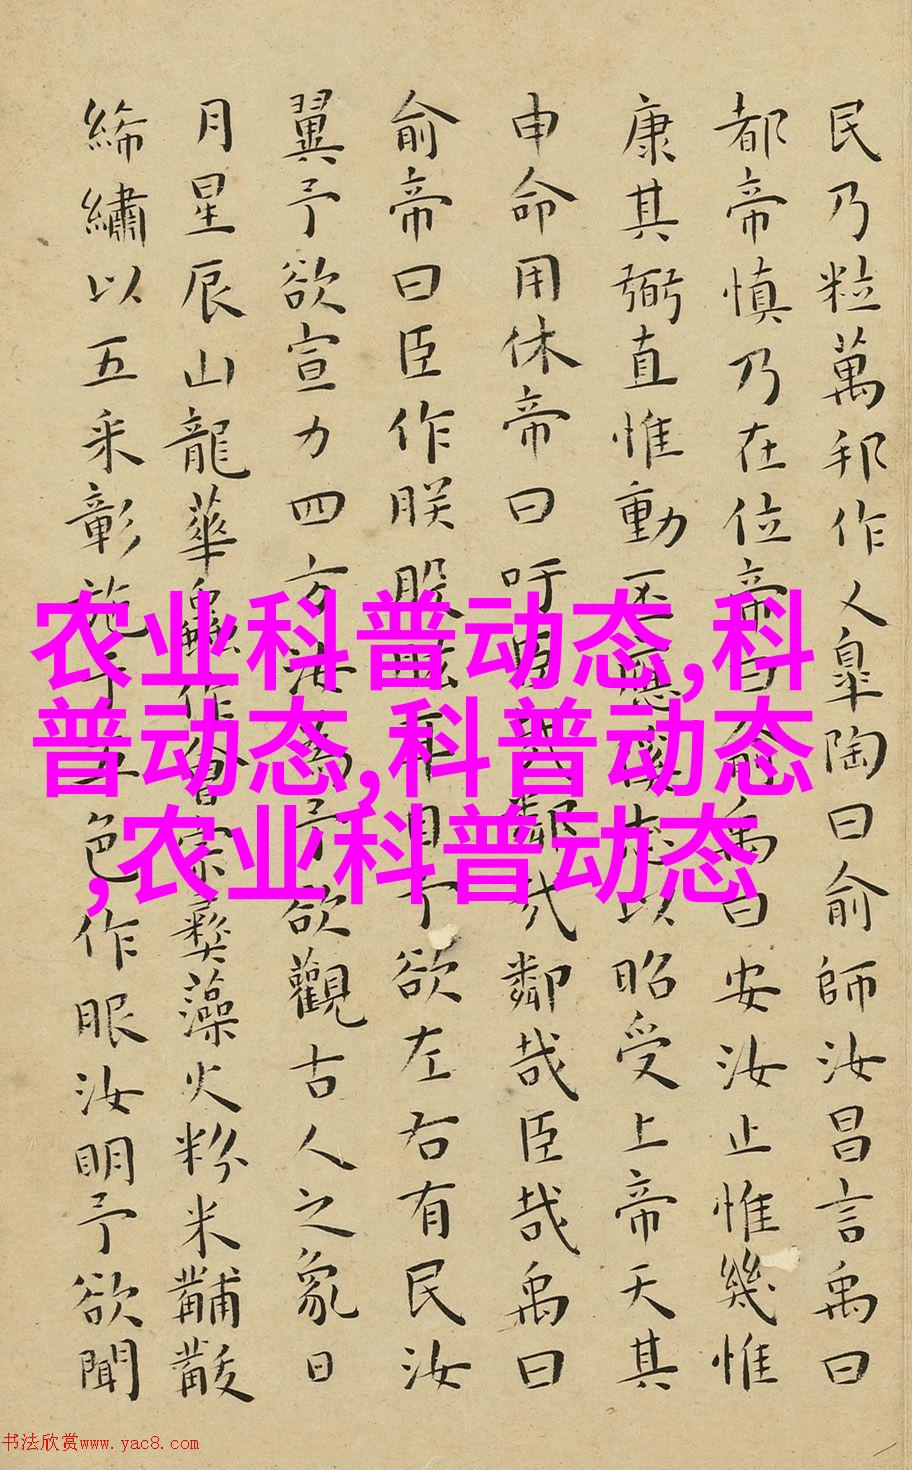 民乃粒萬邦作乂皐陶曰俞師汝昌言禹曰
都帝慎乃在位帝曰俞禹曰安汝止惟幾惟
康其弼直惟動丕應徯志以昭受上帝天其
申命用休帝曰吁臣哉鄰哉鄰哉臣哉禹曰
俞帝曰臣作朕股肱耳目予欲左右有民汝
翼予欲宣力四方汝為予欲觀古人之象日
月星辰山龍華蟲作會宗彝藻火粉米黼黻
絺繡以五采彰施于五色作服汝明予欲聞
农业科普动态,科
普动态,科普动态
,农业科普动态
书法欣赏www.yac8.com